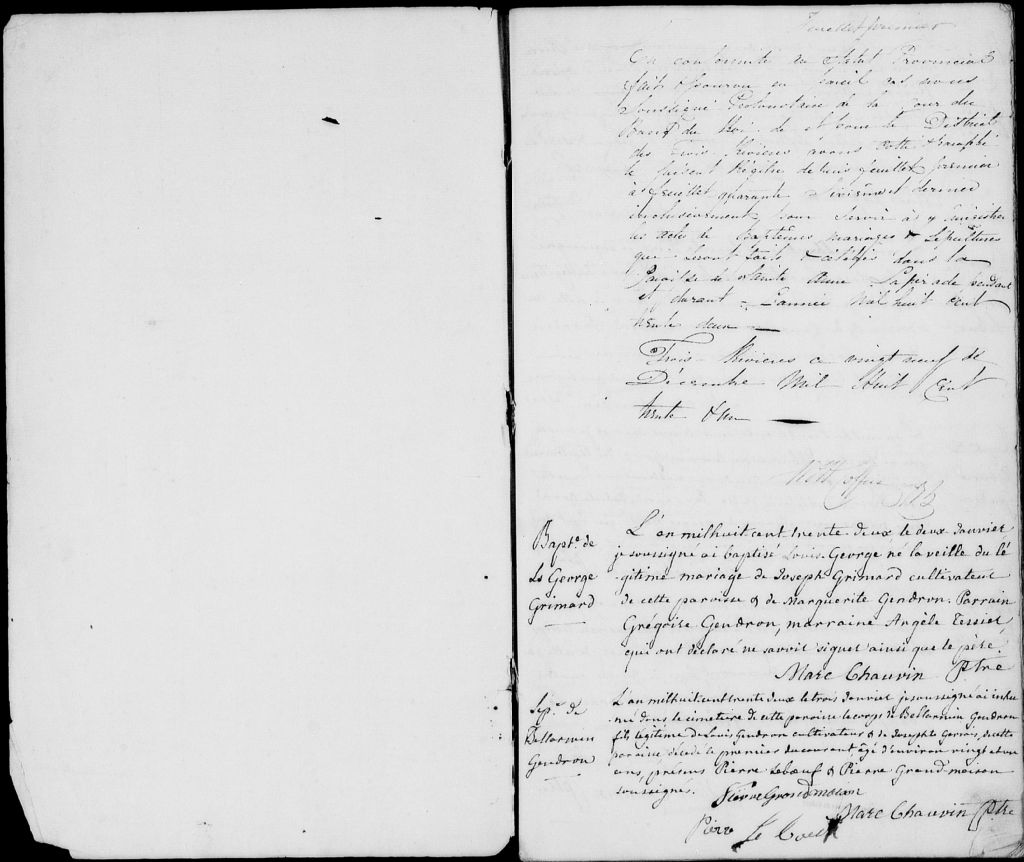 Feuillet premier
En conformité au Statut Provincial
fait & pourvu en pareil cas nous
Soussigné Protonotaire de la Cour du
Banc du Roi de et pour le District
des Trois Rivieres avons coté & paraphé
le présent Régitre depuis feuillet premier
à feuillet quarante Sixieme et dernier
inclusivement, pour servir à y enrégistrer
les actes de Baptêmes mariages & Sépultures
qui seront faits & célébrés dans la
Paroisse de Sainte Anne Laperade pendant
et durant L'année Mil huit cent
trente deux
Trois Rivieres ce vingt neuf de
Décembre Mil Huit Cent
trente & un
Bapt. de
Ls George
Grimard
L'an milhuit cent trente deux le deux Janvier
je soussigné ai baptisé Louis George né la veille du lé
gitime mariage de Joseph Grimard cultivateur
de cette paroisse & de Marguerite Gendron. Parrain
Grégoire Gendron, marraine Angèle Tessier
qui ont déclaré ne savoir signer ainsi que le père.
Marc Chauvin Ptre
Sép. de
Bellarmin
Gendron
L'an milhuit cent trente deux le trois Janvier je soussigné ai inhu
mé dans le cimetière de cette paroisse le corps de Bellarmin Gendron
fils légitime de Louis Gendron cultivateur & de Josephte Gervais, de cette
paroisse décédé le premier du courant âgé d'environ vingt et un
ans, présens Pierre Leboeuf & Pierre Grandmaison
soussignés.
Pierre Grandmaison
Marc Chauvin Ptre
Pierre Le Boeuf